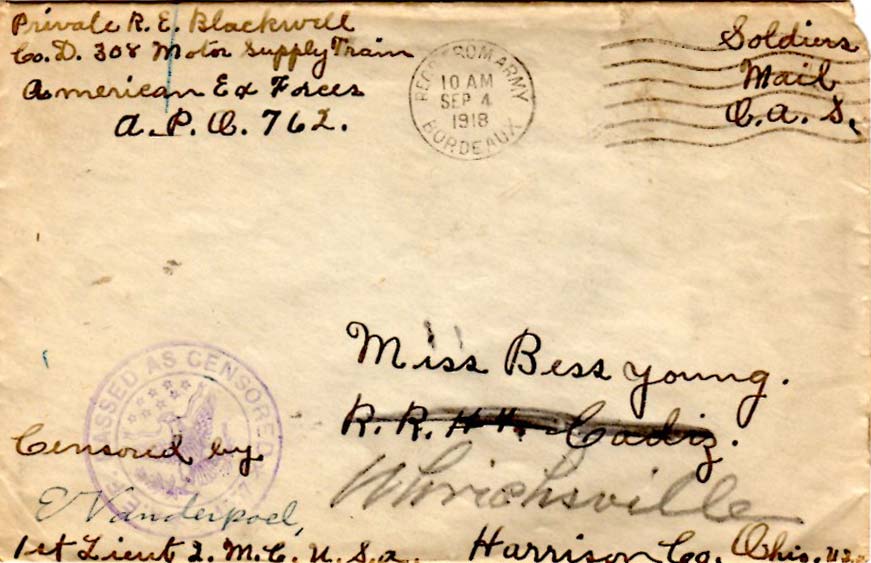 Private R. E. Blackwell
Co. D. 308 Motor Supply Train
American Ex Forces
A. P. O. 762.
RECD FROM ARMY
10 AM
SEP 4
1918
BORDEAUX
Soldiers
Mail
O. A. S.
Miss Bess Young.
R. R. Cadiz.
Uhrichsville
Harrison Co. Ohio. U.S.
PASSED AS CENSORED
Censored by
E Vanderpoel,
1st Lieut Q. M. C. U. S. A.